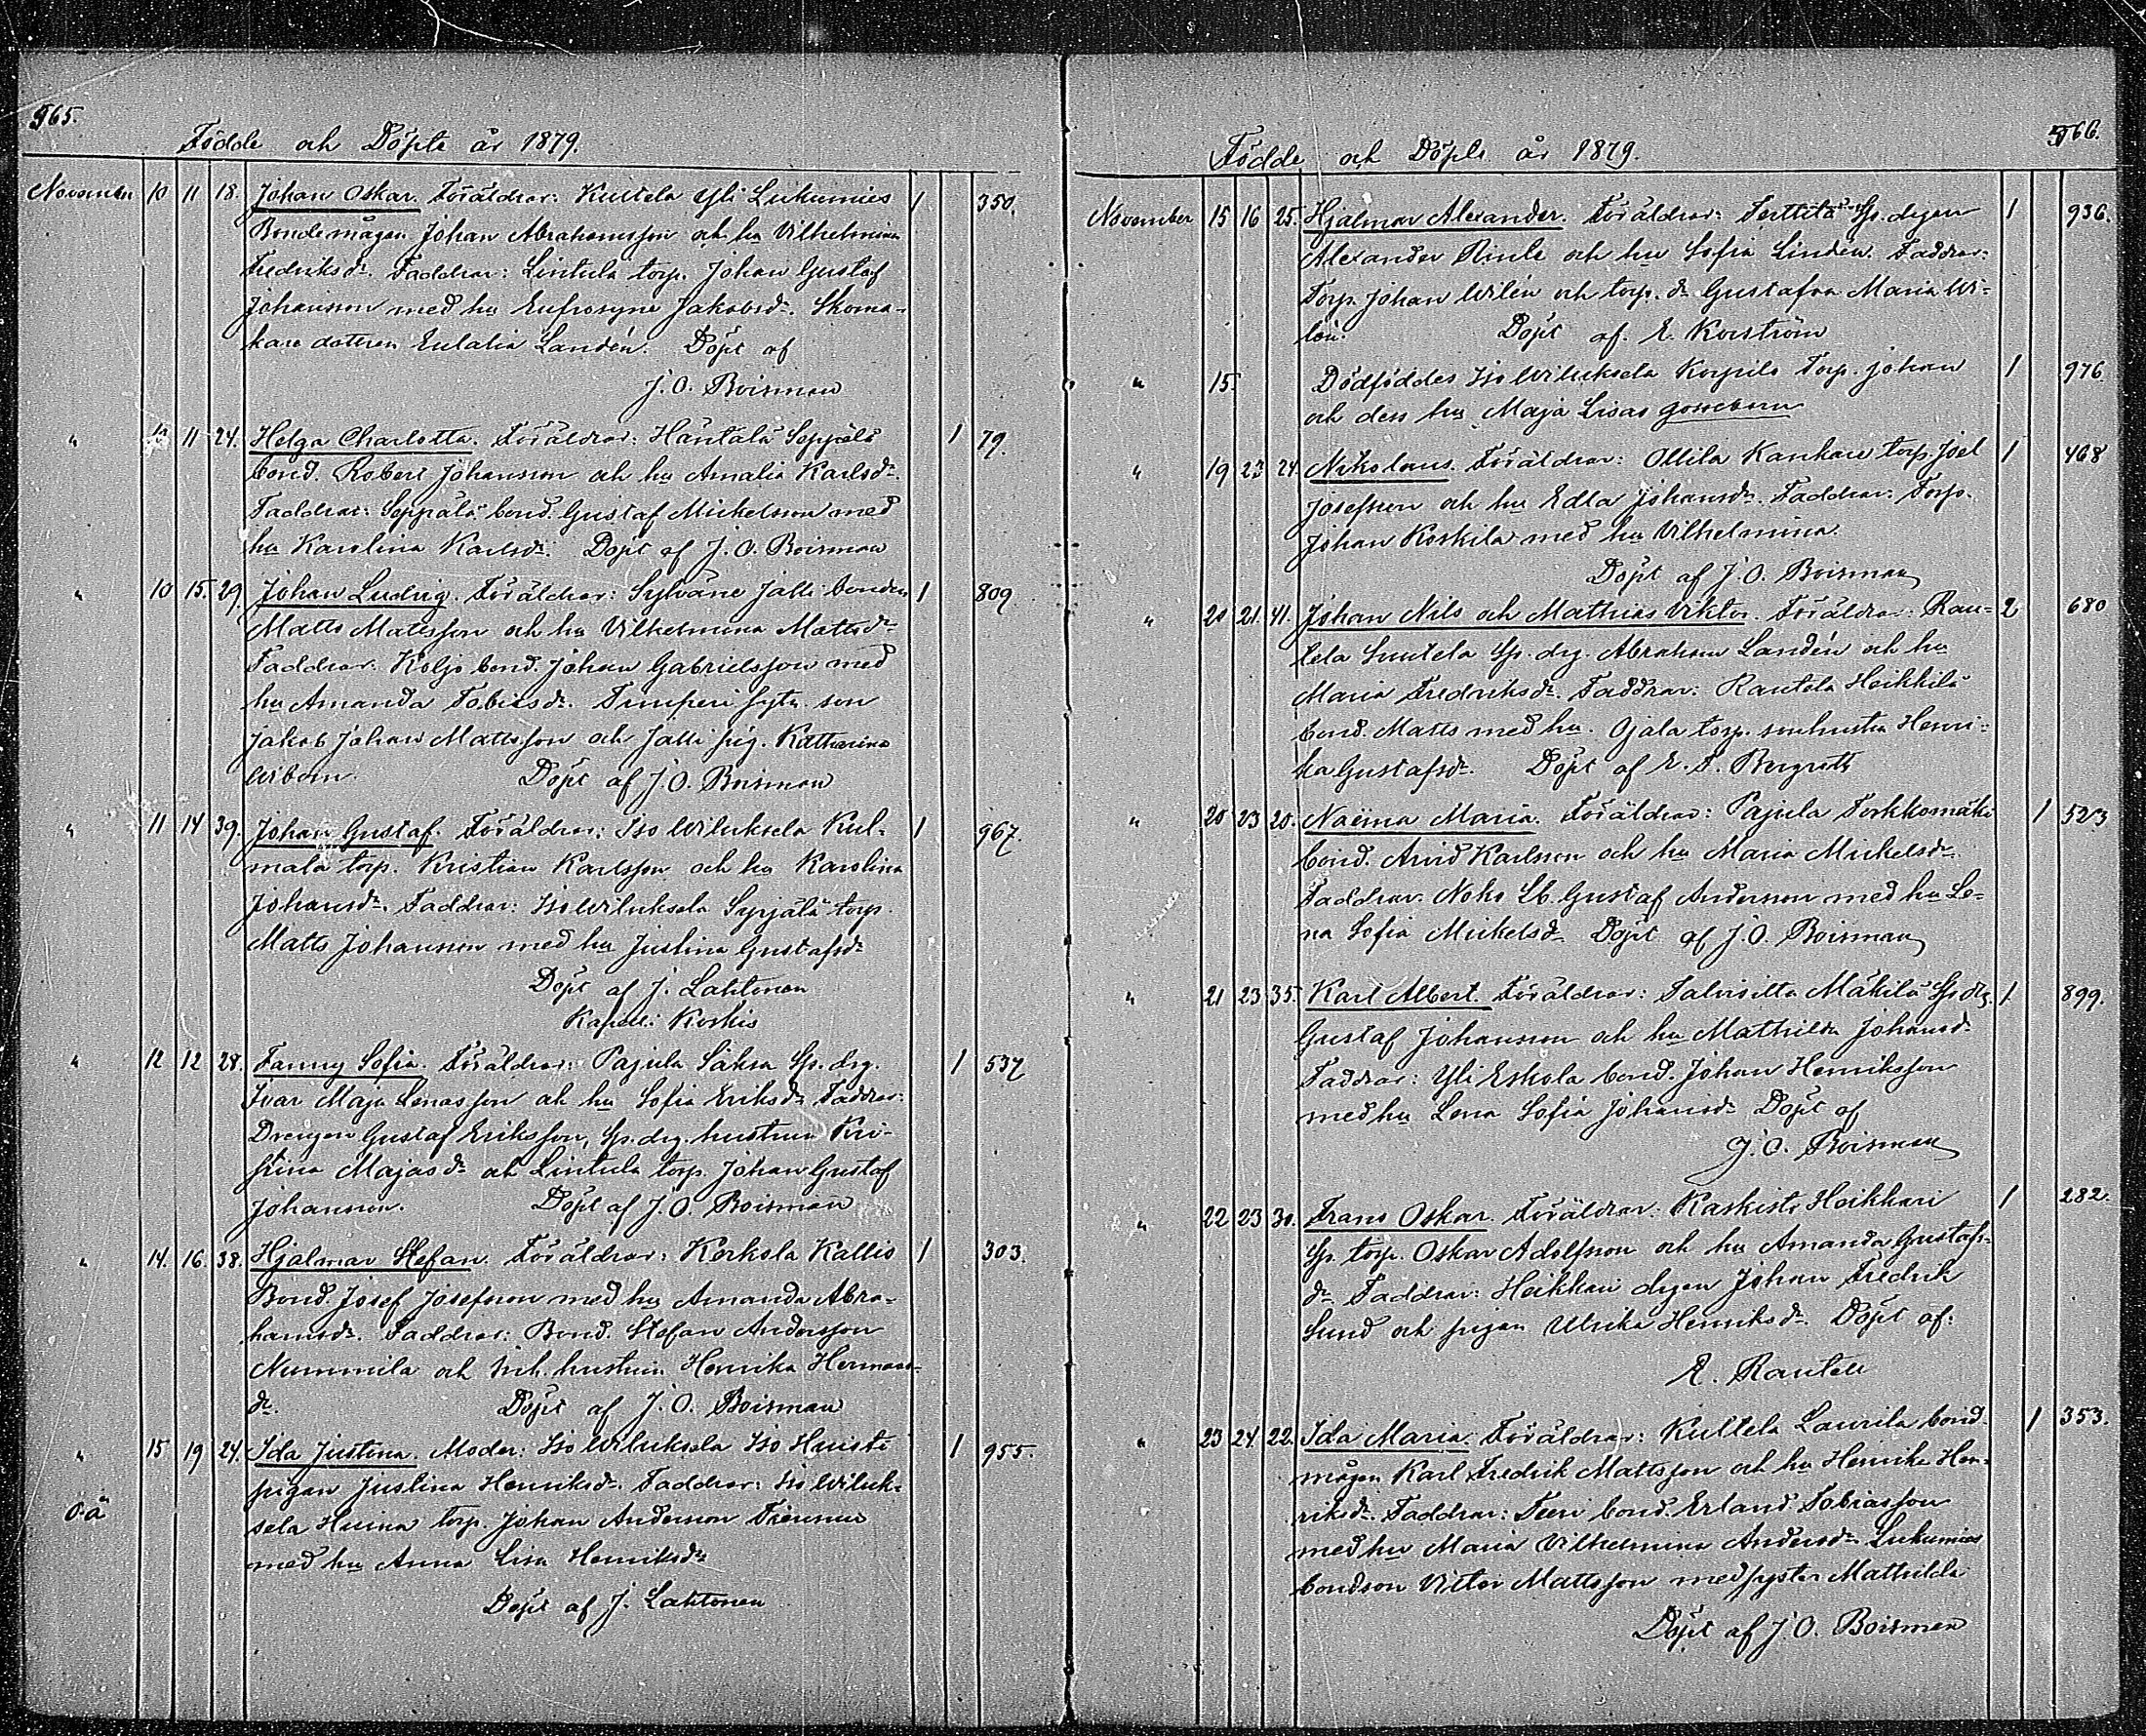 565.
Födde och Döpte år 1879.
November 10 11 18. Johan Oskar. Föräldrar: Kuttela Yli Lukumies 1 350.
Bondemågen Johan Abrahamsson och hu Vilhelmina
Fredriksdr. Faddrar: Lintula torp. Johan Gustaf
Johansson med hu Eufrosyne Jakobsdr. Skoma-
kare dottren Eulalia Landén. Döpt af
J. O. Boisman
" 10 11 24. Helga Charlotta. Föräldrar: Häntälä Seppälä 1 79.
bond. Robert Johansson och hu Amalia Karlsdr.
Faddrar: Seppälä bond. Gustaf Mickelsson med
hu Karolina Karlsdr. Döpt af J. O. Boisman
" 10 15. 29. Johan Ludvig. Föräldrar: Sylväne Jalli bonden 1 809
Matts Mattsson och hu Vilhelmina Mattsdr
Faddrar: Koljo bond. Johan Gabrielsson med
hu Amanda Tobiasdr. Timperi son
Jakob Johan Mattsson och Jalli pig. Katharina
Wibom. Döpt af J. O. Boisman
" 11 14 39. Johan Gustaf. Föräldrar: Iso Wiluksela Kul- 1 967.
mala torp. Kristian Karlsson och hu Karolina
Johansdr. Faddrar: Iso Wiluksela Syrjälä torp.
Matts Johansson med hu Justina Gustafsdr
Döpt af J. Lahtonen
Kapell. i Koskis
" 12 12 28. Fanny Sofia. Föräldrar: Pajula Saksa Sp. drg. 1 537
Ivar Maja Lenasson och hu Sofia Eriksdr Faddrar:
Drengen Gustaf Eriksson, Sp. drg. hustrun Kri-
stina Majasdr och Lintula torp. Johan Gustaf
Johansson. Döpt af J. O. Boisman
" 14. 16. 38. Hjalmar Stefan. Föräldrar: Kerkola Kallio 1 303.
Bond. Josef Josefsson med hu Amanda Abra-
hamsdr. Faddrar: Bond. Stefan Andersson
Nummila och hustrun Henrika Hermans-
dr. Döpt af J. O. Boisman
" 15 19 24. Ida Justina. Moder: Iso Wiluksela Iso Huisti 1 955.
pigan Justina Henriksdr. Faddrar: Iso Wiluk-
o ä sela torp. Johan Andersson
med hu Anna Lisa Henriksdr
Döpt af J. Lahtonen
566.
Födde och Döpte år 1879.
November 15 16 25. Hjalmar Alexander. Föräldrar: Terttilä Sp. drgen 1 936.
Alexander Rinle och hu Sofia Lindén. Faddrar:
Torp. Johan Wilén och torp. dr Gustafva Maria Wi-
lén. Döpt af. E. Korström
" 15. Dödföddes Iso Wiluksela Korpilo Torp. Johan 1 976.
och dess hu Maja Lisas gossebarn
" 19 23 24. Nikolaus. Föräldrar: Ollila Kankare torp. Joel 1 468
Josefsson och hu Edla Johansdr. Faddrar: Torp.
Johan Koskila med hu Vilhelmina.
Döpt af J. O. Boisman
" 20 21. 41. Johan Nils och Mathias Viktor. Föräldrar: Rau- 2 680
tela Suutela Sp. drg. Abraham Landén och hu
Maria Fredriksdr. Faddrar: Rautela Heikkilä
bond. Matts med hu. Ojala torp. sonhustru Henri-
ka Gustafsdr. Döpt af Bergroth
" 20 23 20. Naëma Maria. Föräldrar: Pajula Torkkomäki 1 523
bond. Arvid Karlsson och hu Maria Mickelsdr
Faddrar: Noko Lb. Gustaf Andersson med hu Le-
na Sofia Mickelsdr Döpt af J. O. Boisman
" 21 23 35. Karl Albert. Föräldrar: Talvisilta Mäkilä Sp. drg. 1. 899.
Gustaf Johansson och hu Mathilda Johansdr
Faddrar: Yli Eskola bond. Johan Henriksson
med hu Lena Sofia Johansdr Döpt af
J. O. Boisman
" 22 23 30. Frans Oskar. Föräldrar: Raskisto Heikkari 1 282.
Sp. torp. Oskar Adolfsson och hu Amanda Gustafs-
dr. Faddrar: Heikkari drgen Johan Fredrik
Sund och pigan Ulrika Henriksdr. Döpt af:
E. Rautell
" 23 24. 22. Ida Maria. Föräldrar: Kuttela Laurila bond. 1 353.
mågen Karl Fredrik Mattsson och hu Henrika Hen-
riksdr. Faddrar: Teeri bond. Erland Tobiasson
med hu Maria Vilhelmina Andersdr. Lukumies
bondson Viktor Mattsson med syster Mathilda
Döpt af J. O. Boisman